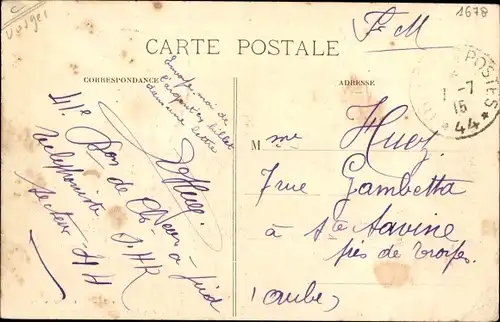 Vosges
1678
F. M
CARTE POSTALE
CORRESPONDANCE
ADRESSE
POSTES
1 -7
15
* 44 *
Envoye moi de
l'argent en billet
dans une lettre
41e Bon de Ch eurs à pied
P. H R
Téléphoniste
Secteur 44
M me Huez
7 rue Gambetta
à Ste Savine
près de Troyes
(Aube)